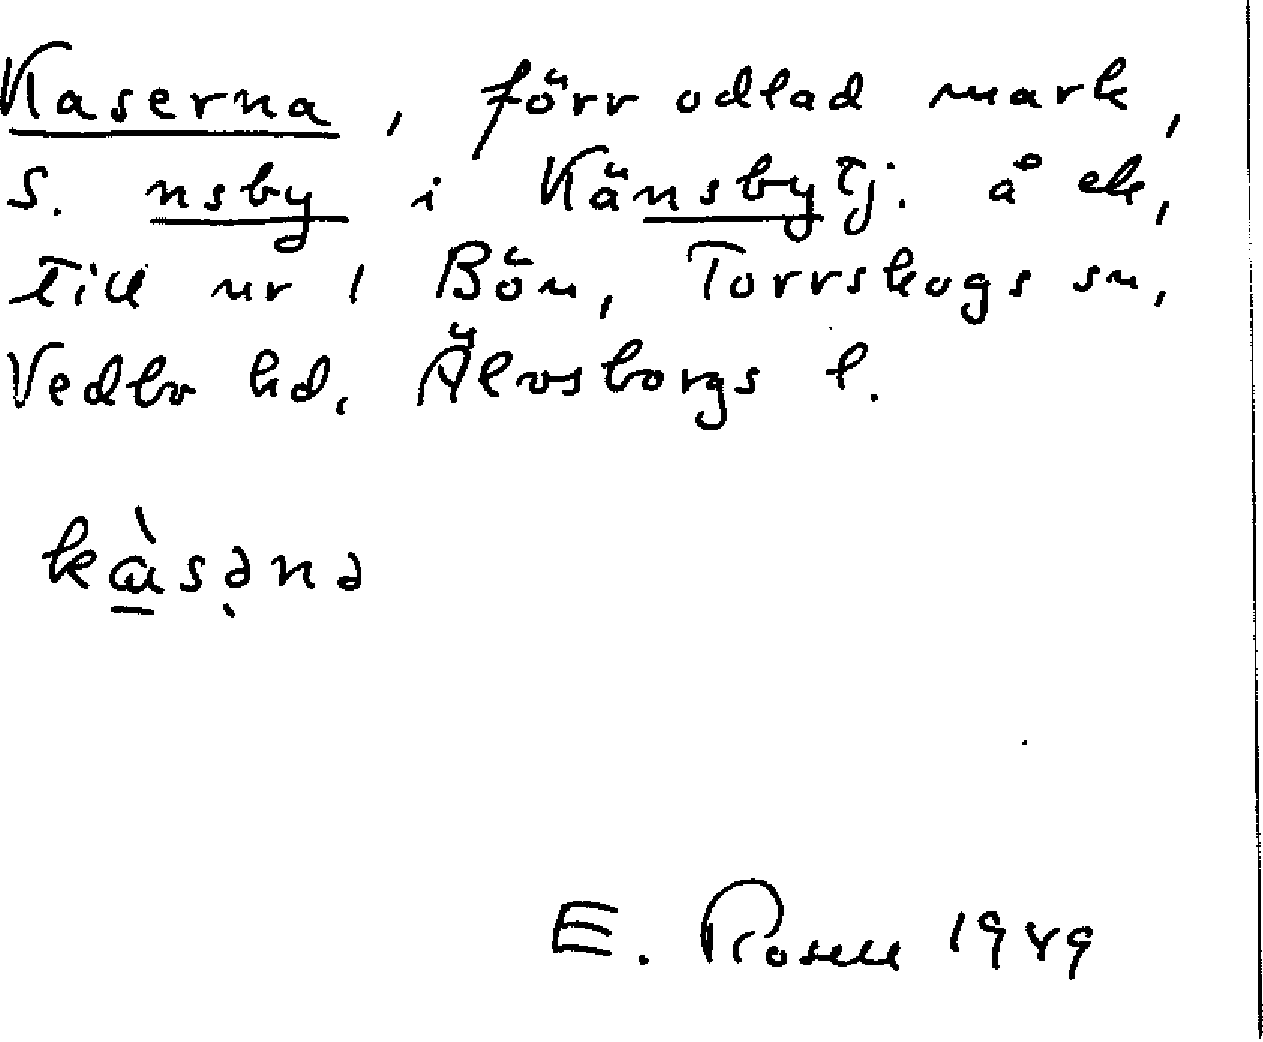 Kaserna, förr odlad mark,
S. nsby i Känsbytj. å ek,
till nr 1 Bön, Torrskogs sn,
Vedbo hd, Älvsborgs l.
kàsənə
E. Rosell 1949